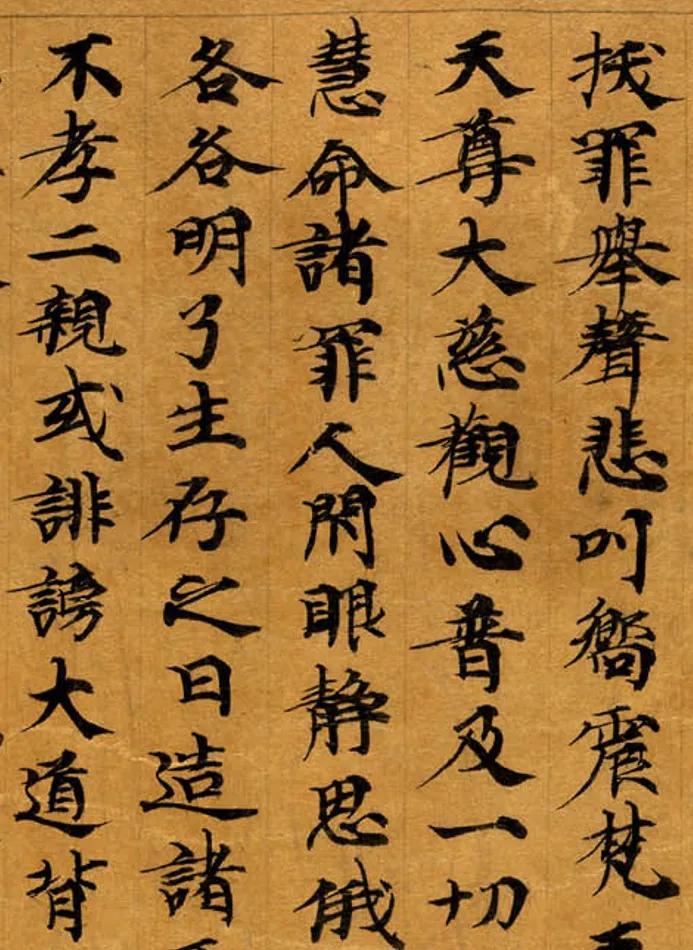 拔罪舉聲悲叫嚮震梵
天尊大慈觀心普及一切
慧命諸罪人閇眼靜思俄
各各明了生存之日造諸
不孝二親或誹謗大道背